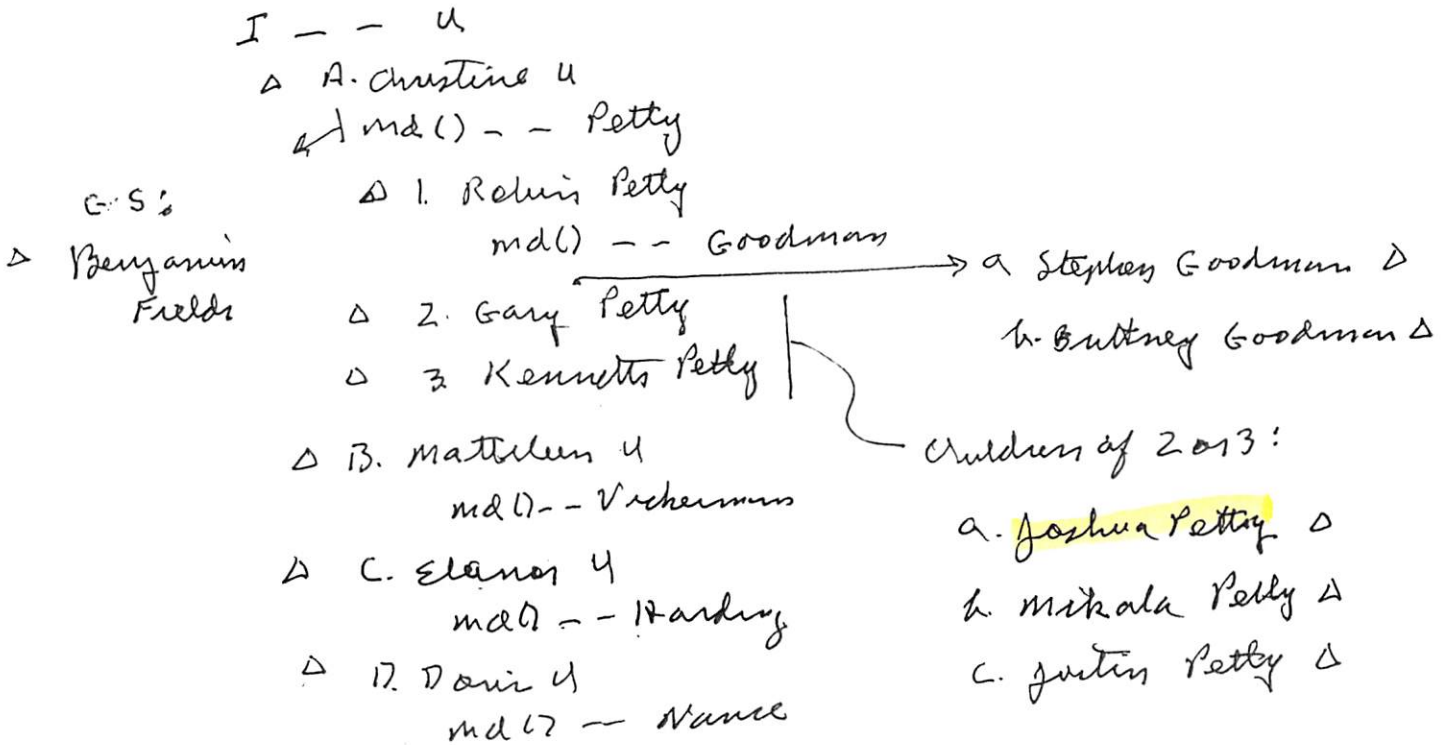 I - - U
Δ A. Christine U
md () - - Petty
Δ 1. Robin Petty
md () - - Goodman
G.S:
Δ Benjamin
Fields
Δ 2. Gary Petty
Δ 3. Kenneth Petty
Δ B. Mattileen U
md () - - Vickermans
Δ C. Elanor U
md () - - Harding
Δ D. Doris U
md () - - Nance
a Stephen Goodman Δ
b. Brittney Goodman Δ
Children of 2 or 3:
a. Joshua Petty Δ
b. Mikala Petty Δ
c. Justin Petty Δ